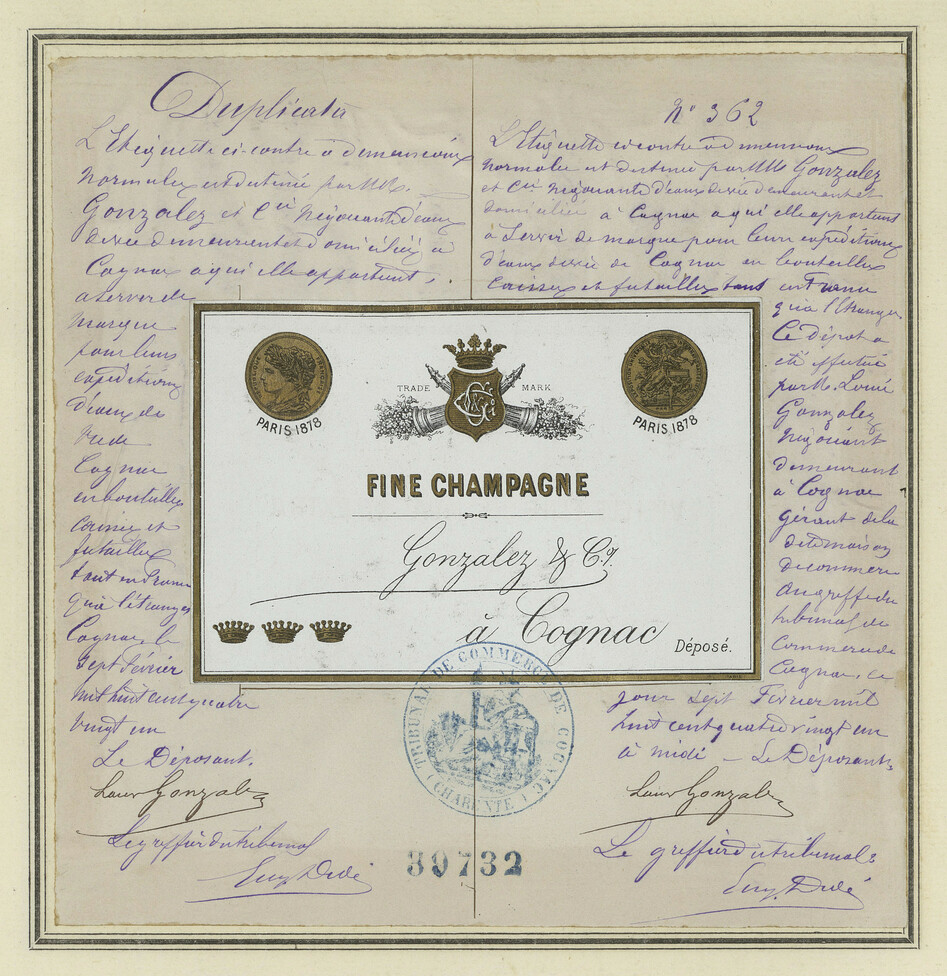 Duplicata
L'Etiquette ci-contre à dimensions
normales est destinée par MM.
Gonzalez et Cie Négociants d'eaux
de vie demeurant et domiciliés à
Cognac à qui elle appartient,
à servir de
marque
pour leurs
expéditions
d'eaux de
vie de
Cognac
en bouteilles
caisses et
futailles
tant en France
qu'à l'étranger
Cognac, le
sept février
mil huit cent quatre
vingt un
Le Déposant,
Louis Gonzalez
Le greffier du tribunal
Eug. Dulé
N° 362
L'Etiquette ci contre à dimensions
normales est destinée par MM Gonzalez
et Cie Négociants d'eaux de vie demeurant et
domiciliés à Cognac à qui elle appartient
à servir de marque pour leurs expéditions
d'eaux de vie de Cognac en bouteilles
caisses et futailles tant en France
qu'à l'étranger
Ce dépôt a
été effectué
par M. Louis
Gonzalez
négociant
demeurant
à Cognac
gérant de la
dite maison
de commerce
au greffe du
tribunal de
Commerce de
Cognac, ce
jour sept Février mil
huit cent quatre vingt un
à midi - Le Déposant
Louis Gonzalez
Le greffier du tribunal
Eug. Dulé
TRADE MARK
PARIS 1878
PARIS 1878
FINE CHAMPAGNE
Gonzalez & Co.
à Cognac
Déposé.
TRIBUNAL DE COMMERCE DE COGNAC
(CHARENTE)
30732